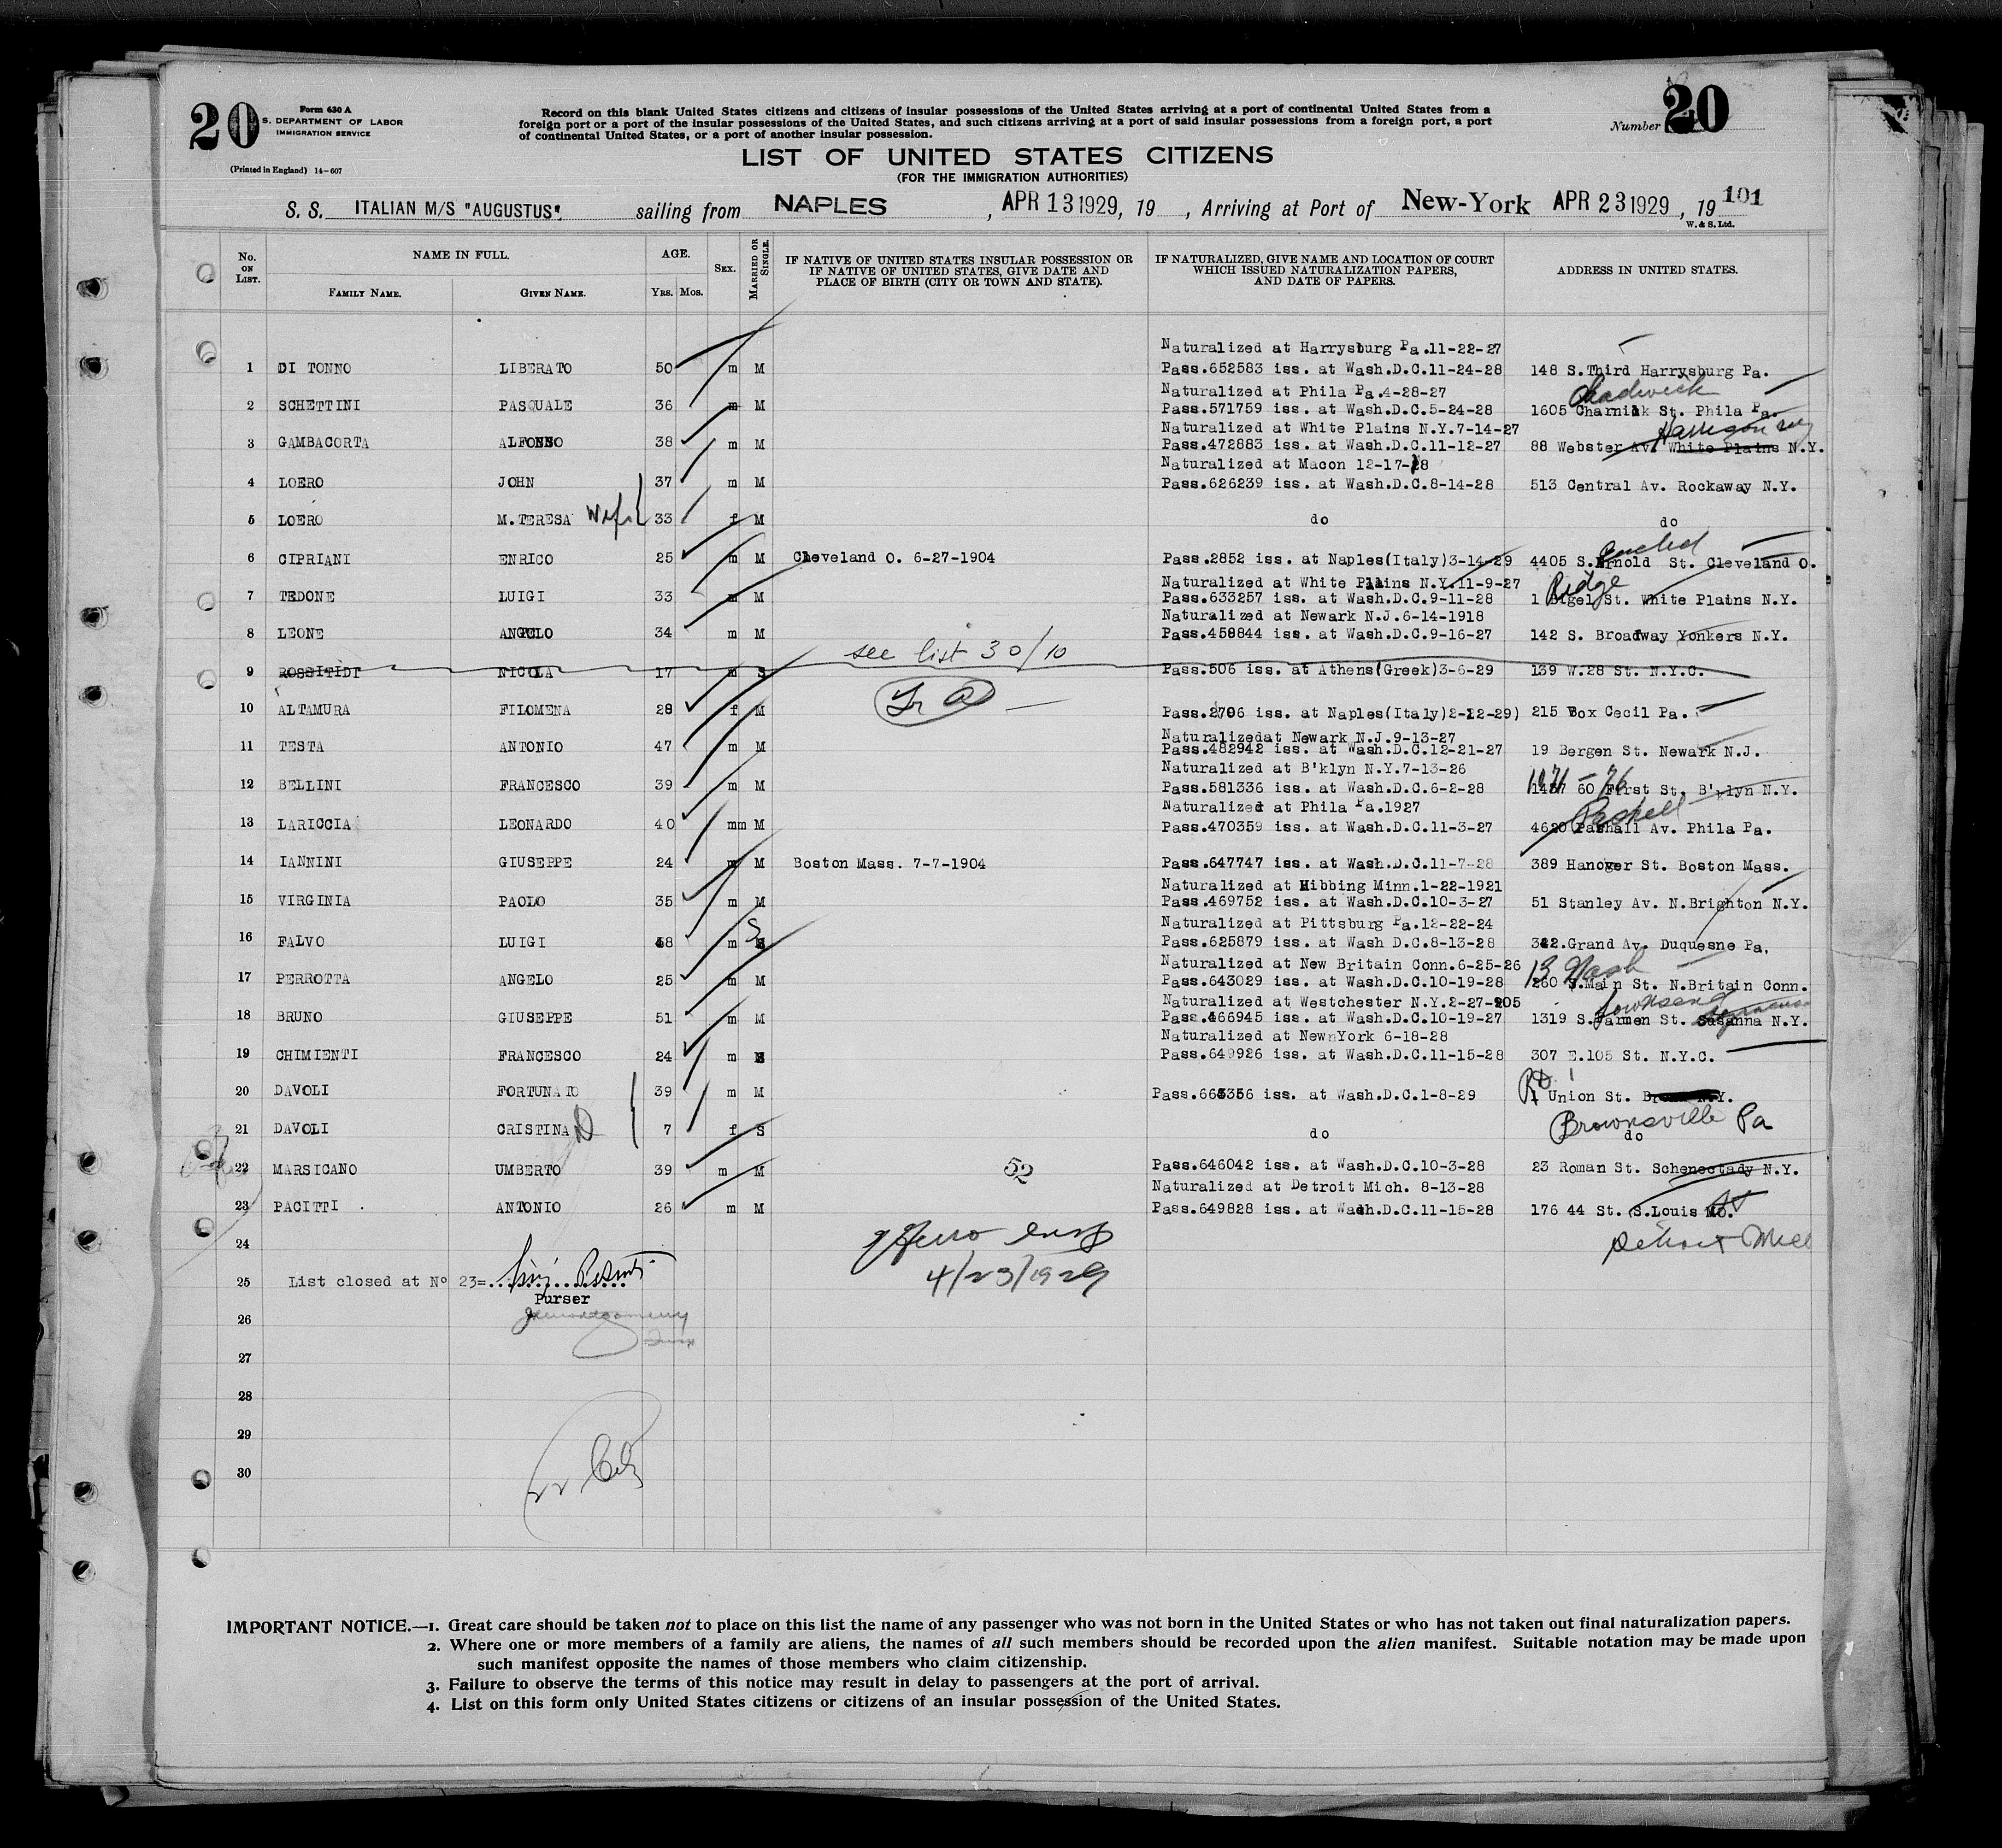 20
Form 630 A
S. DEPARTMENT OF LABOR
IMMIGRATION SERVICE
(Printed in England) 14-607
Record on this blank United States citizens and citizens of insular possessions of the United States arriving at a port of continental United States from a
foreign port or a port of the insular possessions of the United States, and such citizens arriving at a port of said insular possessions from a foreign port, a port
of continental United States, or a port of another insular possession.
Number 20
LIST OF UNITED STATES CITIZENS
(FOR THE IMMIGRATION AUTHORITIES)
S. S. ITALIAN M/S "AUGUSTUS". sailing from NAPLES, APR 13 1929, 19 , Arriving at Port of New-York APR 23 1929, 19 101
W. & S. Ltd.
No. ON LIST. NAME IN FULL. AGE. SEX. MARRIED OR SINGLE. IF NATIVE OF UNITED STATES INSULAR POSSESSION OR IF NATIVE OF UNITED STATES, GIVE DATE AND PLACE OF BIRTH (CITY OR TOWN AND STATE). IF NATURALIZED, GIVE NAME AND LOCATION OF COURT WHICH ISSUED NATURALIZATION PAPERS, AND DATE OF PAPERS. ADDRESS IN UNITED STATES.
FAMILY NAME. GIVEN NAME. YRS. MOS.
Naturalized at Harrysburg Pa.11-22-27
1 DI TONNO LIBERATO 50 m M Pass.652583 iss. at Wash.D.C.11-24-28 148 S.Third Harrysburg Pa.
Naturalized at Phila Pa.4-28-27 Chadwick
2 SCHETTINI PASQUALE 36 m M Pass.571759 iss. at Wash.D.C.5-24-28 1605 Charnik St. Phila Pa.
Naturalized at White Plains N.Y.7-14-27 Harrison
3 GAMBACORTA ALFONSO 38 m M Pass.472883 iss. at Wash.D.C.11-12-27 88 Webster Av. White Plains N.Y.
Naturalized at Macon 12-17-18
4 LOERO JOHN 37 m M Pass.626239 iss. at Wash.D.C.8-14-28 513 Central Av. Rockaway N.Y.
5 LOERO M.TERESA Wife 33 f M do do
6 CIPRIANI ENRICO 25 m M Cleveland O. 6-27-1904 Pass.2852 iss. at Naples(Italy)3-14-29 4405 S.Arnold St. Cleveland O.
Naturalized at White Plains N.Y.11-9-27 Ridge
7 TEDONE LUIGI 33 m M Pass.633257 iss. at Wash.D.C.9-11-28 1 Sigel St. White Plains N.Y.
Naturalized at Newark N.J.6-14-1918
8 LEONE ANGELO 34 m M Pass.458844 iss. at Wash.D.C.9-16-27 142 S. Broadway Yonkers N.Y.
see list 30/10
9 ROSSITIDI NICOLA 17 m S Pass.506 iss. at Athens(Greek)3-6-29 139 W.28 St. N.Y.C.
10 ALTAMURA FILOMENA 28 f M Pass.2706 iss. at Naples(Italy)2-12-29) 215 Box Cecil Pa.
Naturalizedat Newark N.J.9-13-27
11 TESTA ANTONIO 47 m M Pass.482942 iss. at Wash.D.C.12-21-27 19 Bergen St. Newark N.J.
Naturalized at B'klyn N.Y.7-13-26
12 BELLINI FRANCESCO 39 m M Pass.581336 iss. at Wash.D.C.6-2-28 60 First St. B'klyn N.Y.
Naturalized at Phila Pa.1927 Paskell
13 LARICCIA LEONARDO 40 mm M Pass.470359 iss. at Wash.D.C.11-3-27 4620 Pashall Av. Phila Pa.
14 IANNINI GIUSEPPE 24 m M Boston Mass. 7-7-1904 Pass.647747 iss. at Wash.D.C.11-7-28 389 Hanover St. Boston Mass.
Naturalized at Hibbing Minn.1-22-1921
15 VIRGINIA PAOLO 35 m M Pass.469752 iss. at Wash.D.C.10-3-27 51 Stanley Av. N.Brighton N.Y.
Naturalized at Pittsburg Pa.12-22-24
16 FALVO LUIGI m S Pass.625879 iss. at Wash D.C.8-13-28 Grand Av. Duquesne Pa,
Naturalized at New Britain Conn.6-25-26 13 Nash
17 PERROTTA ANGELO 25 m M Pass.643029 iss. at Wash.D.C.10-19-28 260 S.Main St. N.Britain Conn.
Naturalized at Westchester N.Y.2-27-905 Townsend Syracuse
18 BRUNO GIUSEPPE 51 m M Pass.466945 iss. at Wash.D.C.10-19-27 1319 S.Tarmen St. Susanna N.Y.
Naturalized at NewnYork 6-18-28
19 CHIMIENTI FRANCESCO 24 m Pass.649926 iss. at Wash.D.C.11-15-28 307 E.105 St. N.Y.C.
20 DAVOLI FORTUNATO 39 m M Pass.665356 iss. at Wash.D.C.1-8-29 Union St.
21 DAVOLI CRISTINA D 7 f S do Brownsville Pa do
22 MARSICANO UMBERTO 39 m M 52 Pass.646042 iss. at Wash.D.C.10-3-28 23 Roman St. Schenectady N.Y.
Naturalized at Detroit Mich. 8-13-28
23 PACITTI ANTONIO 26 m M Pass.649828 iss. at Wash.D.C.11-15-28 176 44 St. S.Louis Mo.
24 Detroit
25 List closed at No 23= 4/23/1929
Purser
26
27
28
29
30
IMPORTANT NOTICE.—1. Great care should be taken not to place on this list the name of any passenger who was not born in the United States or who has not taken out final naturalization papers.
2. Where one or more members of a family are aliens, the names of all such members should be recorded upon the alien manifest. Suitable notation may be made upon
such manifest opposite the names of those members who claim citizenship.
3. Failure to observe the terms of this notice may result in delay to passengers at the port of arrival.
4. List on this form only United States citizens or citizens of an insular possession of the United States.